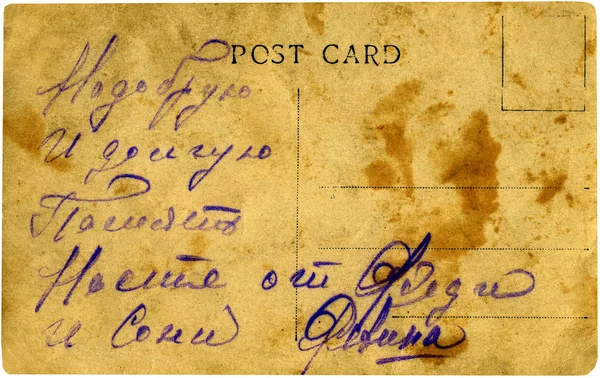 POST CARD
На добрую
и долгую
Память
Насте от Феди
и Сони